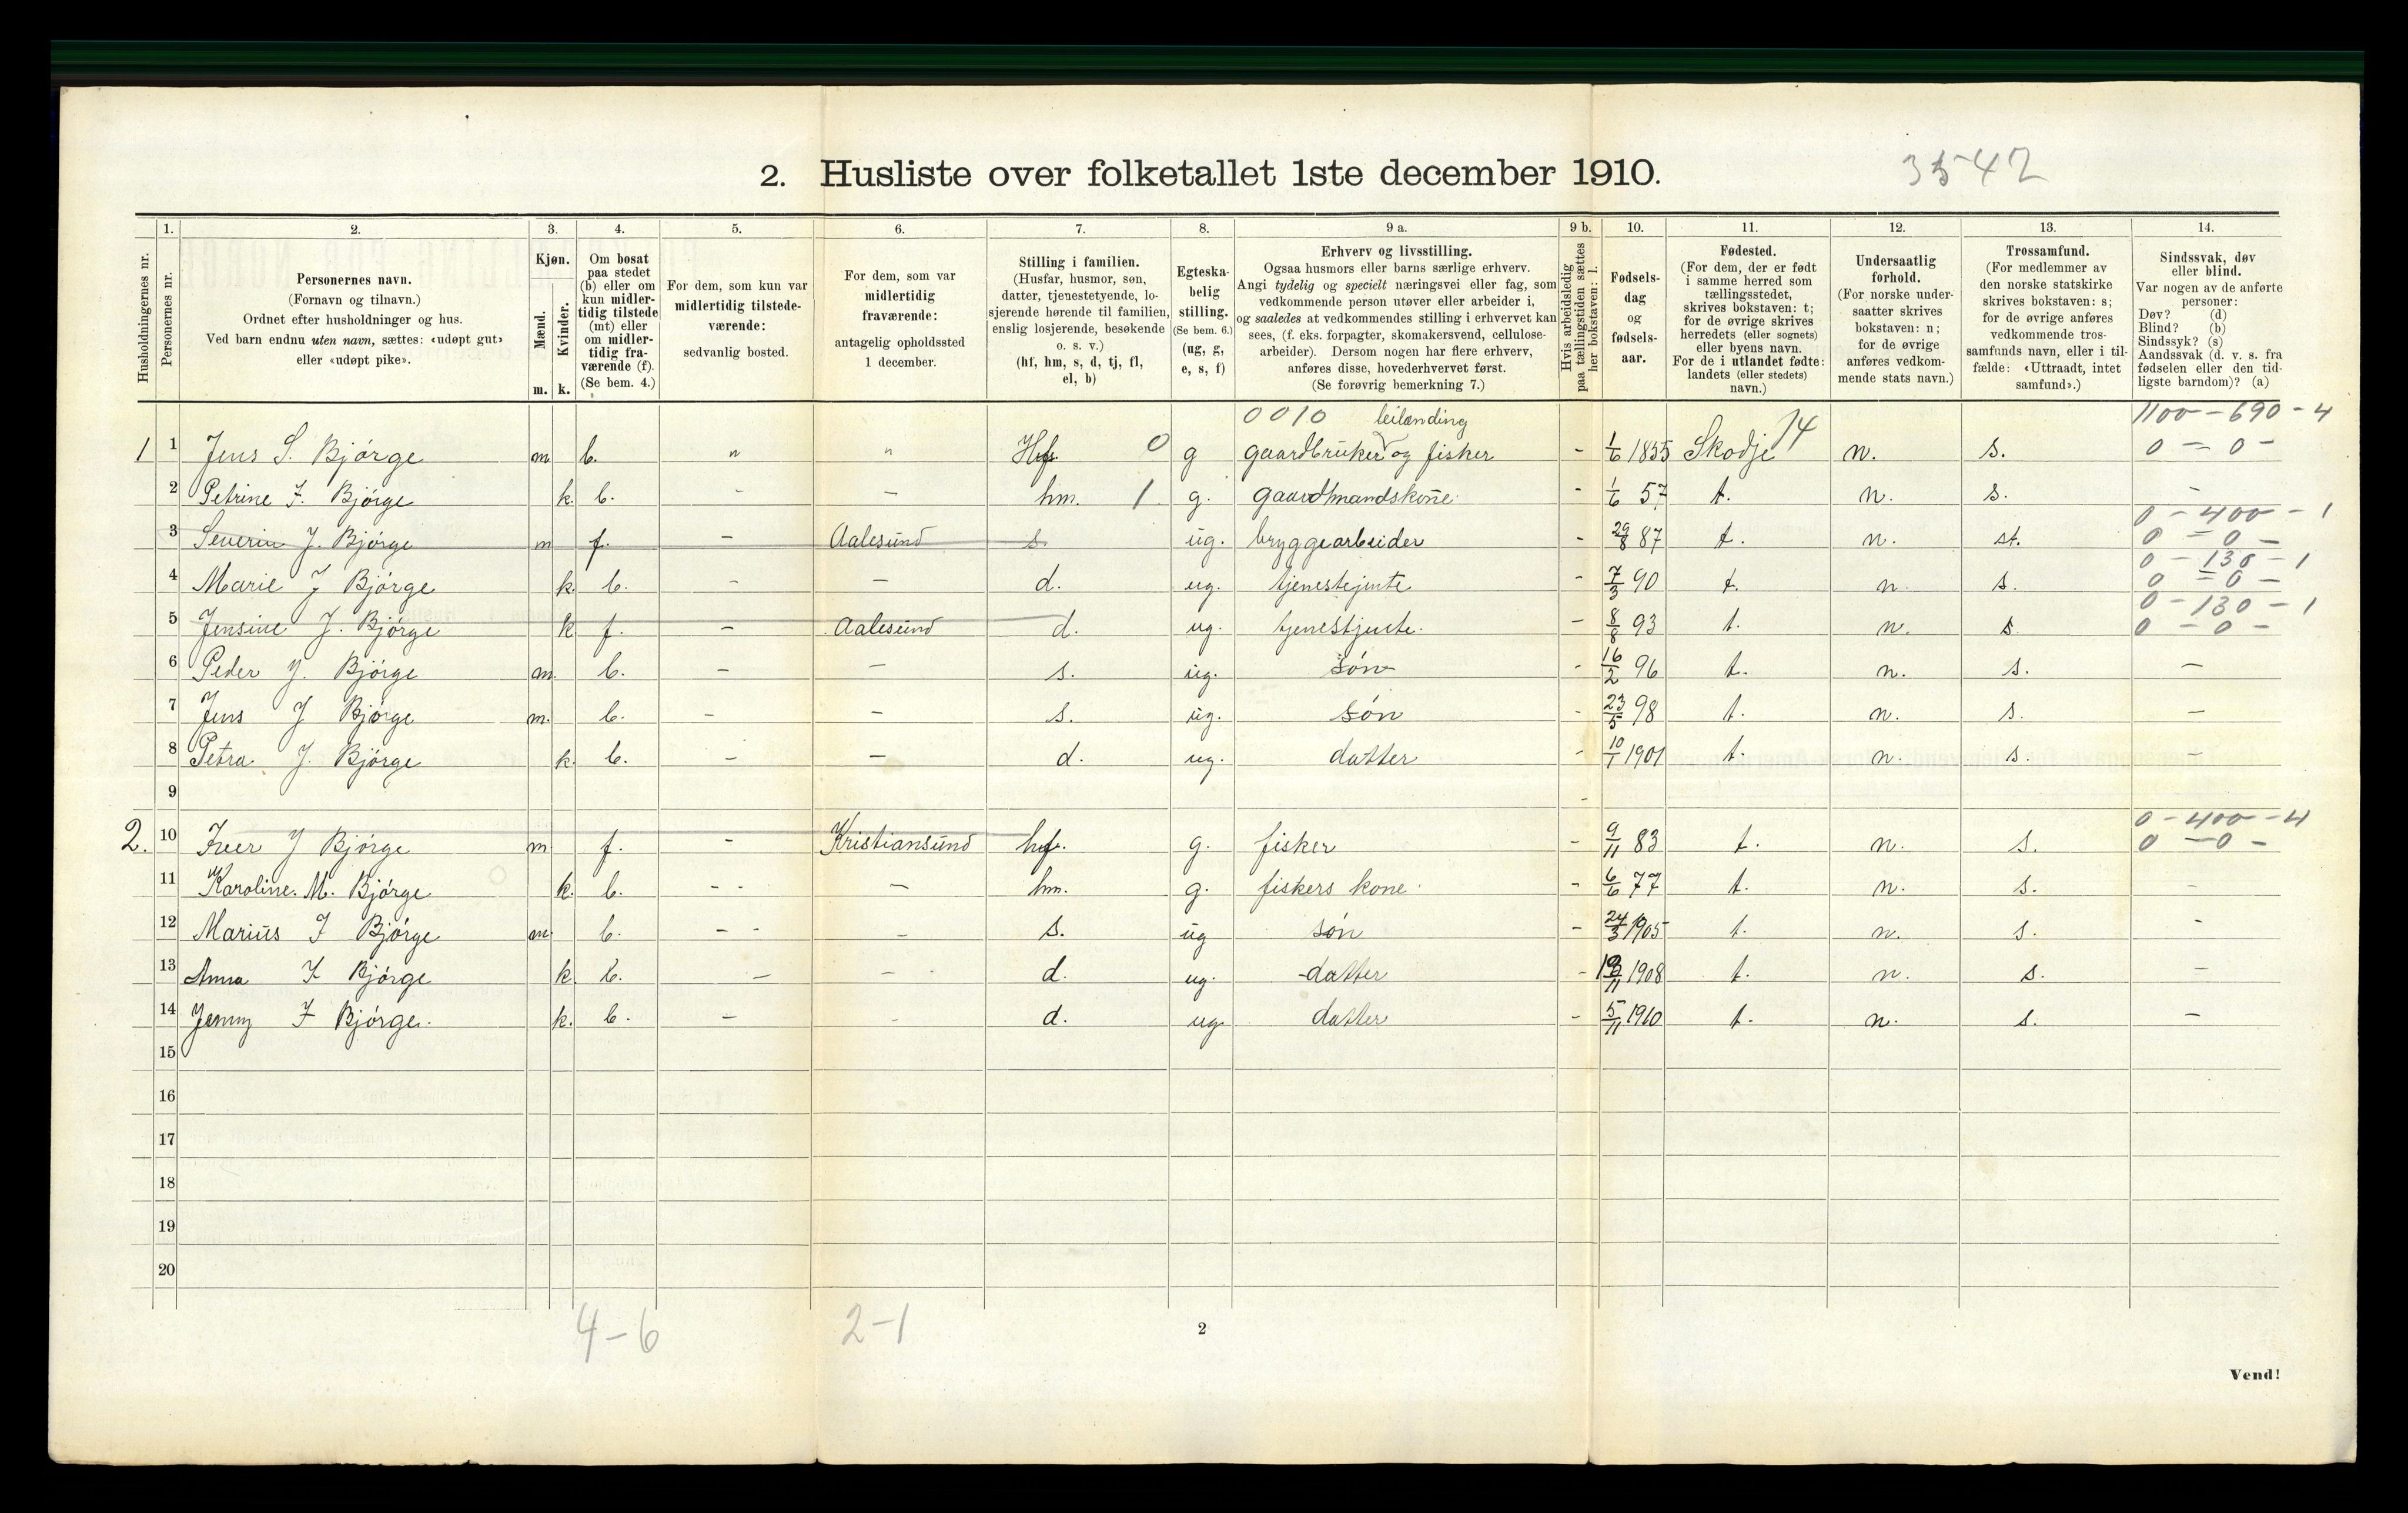 2. Husliste over folketallet 1ste december 1910.
3542
Husholdningernes nr.
1. Personernes nr.
2. Personernes navn.
(Fornavn og tilnavn.)
Ordnet efter husholdninger og hus.
Ved barn endnu uten navn, sættes: «udøpt gut»
eller «udøpt pike».
3. Kjøn.
Mænd. m.
Kvinder. k.
4. Om bosat
paa stedet
(b) eller om
kun midler-
tidig tilstede
(mt) eller
om midler-
tidig fra-
værende (f).
(Se bem. 4.)
5. For dem, som kun var
midlertidig tilstede-
værende:
sedvanlig bosted.
6. For dem, som var
midlertidig
fraværende:
antagelig opholdssted
1 december.
7. Stilling i familien.
(Husfar, husmor, søn,
datter, tjenestetyende, lo-
sjerende hørende til familien,
enslig losjerende, besøkende
o. s. v.)
(hf, hm, s, d, tj, fl,
el, b)
8. Egteska-
belig
stilling.
(Se bem. 6.)
(ug, g,
e, s, f)
9 a. Erhverv og livsstilling.
Ogsaa husmors eller barns særlige erhverv.
Angi tydelig og specielt næringsvei eller fag, som
vedkommende person utøver eller arbeider i,
og saaledes at vedkommendes stilling i erhvervet kan
sees, (f. eks. forpagter, skomakersvend, cellulose-
arbeider). Dersom nogen har flere erhverv,
anføres disse, hovederhvervet først.
(Se forøvrig bemerkning 7.)
9 b. Hvis arbeidsledig
paa tællingstiden sættes
her bokstaven: l.
10. Fødsels-
dag
og
fødsels-
aar.
11. Fødested.
(For dem, der er født
i samme herred som
tællingsstedet,
skrives bokstaven: t;
for de øvrige skrives
herredets (eller sognets)
eller byens navn.
For de i utlandet fødte:
landets (eller stedets)
navn.)
12. Undersaatlig
forhold.
(For norske under-
saatter skrives
bokstaven: n;
for de øvrige
anføres vedkom-
mende stats navn.)
13. Trossamfund.
(For medlemmer av
den norske statskirke
skrives bokstaven: s;
for de øvrige anføres
vedkommende tros-
samfunds navn, eller i til-
fælde: «Uttraadt, intet
samfund».)
14. Sindssvak, døv
eller blind.
Var nogen av de anførte
personer:
Døv? (d)
Blind? (b)
Sindssyk? (s)
Aandssvak (d. v. s. fra
fødselen eller den tid-
ligste barndom)? (a)
0010 leilænding 14 1100 - 690 - 4
1 1 Jens S. Bjørge m b. " " Hf. 0 g gaardbruker og fisker - 1/6 1855 Skodje n. s. 0 - 0 -
2 Petrine I. Bjørge k. b. - - hm. 1 g. gaardmandskone - 1/6 57 t. n. s. -
0 - 400 - 1
3 Severin J. Bjørge m f. - Aalesund s. ug. bryggearbeider - 29/8 87 t. n. st. 0 - 0 -
0 - 130 - 1
4 Marie J Bjørge k. b. - - d. ug. tjenestejente - 7/3 90 t. n. s. 0 - 0 -
0 - 130 - 1
5 Jensine J. Bjørge k f. - Aalesund d. ug. tjenestjente. - 8/8 93 t. n. s. 0 - 0 -
6 Peder J. Bjørge m. b. - - s. ug. søn - 16/2 96 t. n. s. -
7 Jens J Bjørge m. b. - - s. ug. søn - 23/5 98 t. n. s. -
8 Petra J. Bjørge k. b. - - d. ug. datter - 10/1 1901 t. n. s. -
9 -
0 - 400 - 4
2. 10 Iver J Bjørge m f. - Kristiansund hf. g. fisker - 9/11 83 t. n. s. 0 - 0 -
11 Karoline. M. Bjørge k. b. - - - hm. g. fiskers kone - 6/6 77 t. n. s. -
12 Marius I Bjørge m b. - - - s. ug søn - 24/3 1905 t. n. s. -
13 Anna I Bjørge k. b. - - d. ug. datter - /11 1908 t. n. s. -
14 Jenny I Bjørge. k. b. - - d. ug. datter - 5/11 1910 t. n. s. -
15
16
17
18
19
20
4 - 6 2 - 1
2
Vend!